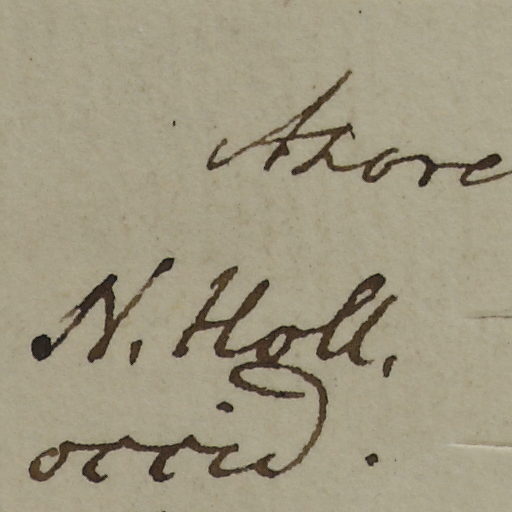 Azore
N. Holl.
occid.